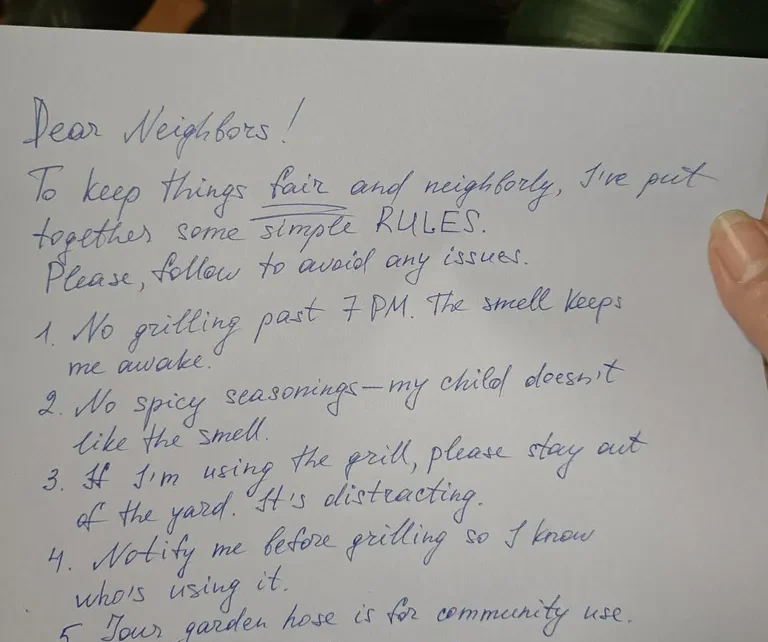 Dear Neighbors!
To keep things fair and neighborly, I've put
together some simple RULES.
Please, follow to avoid any issues.
1. No grilling past 7 PM. The smell keeps
me awake.
2. No spicy seasonings—my child doesn't
like the smell.
3. If I'm using the grill, please stay out
of the yard. It's distracting.
4. Notify me before grilling so I know
who's using it.
5. Your garden hose is for community use.